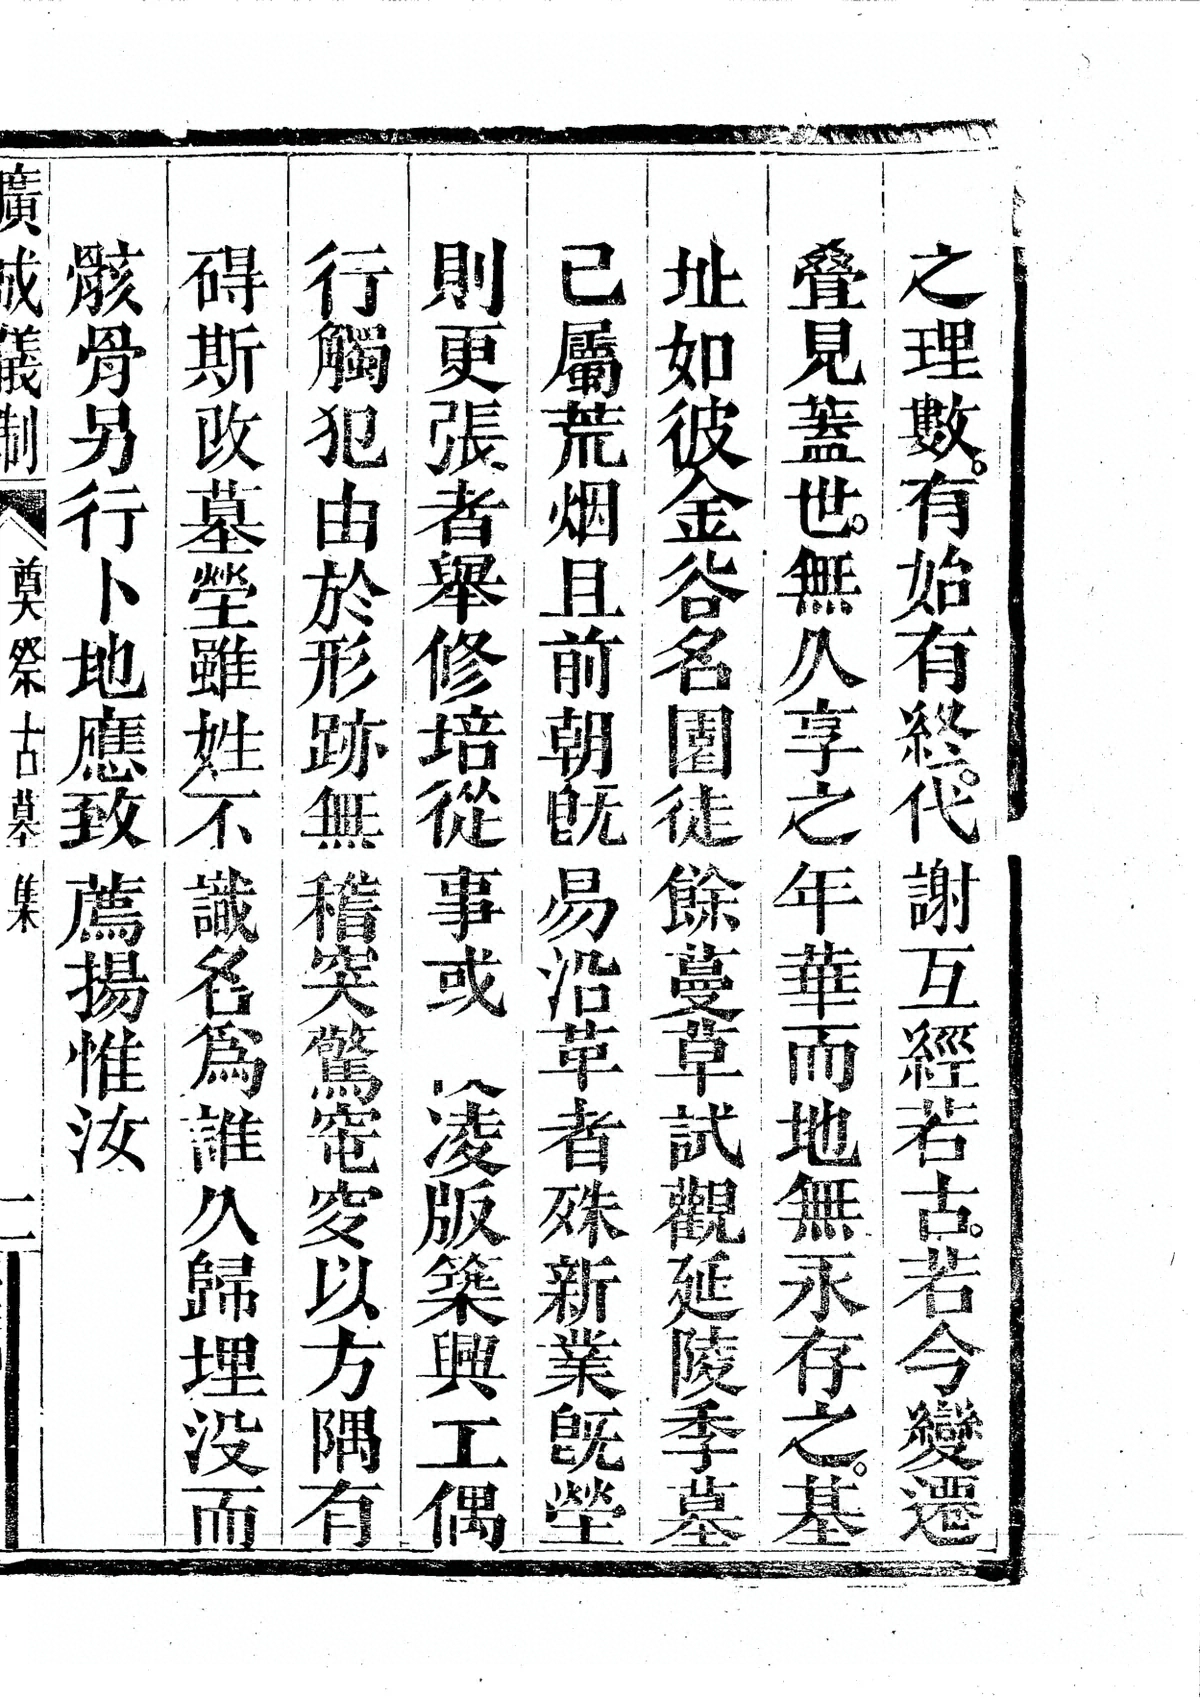 之理數。有始有終。代謝互經若古。若今變遷
叠見蓋世。無久享之年華而地無永存之。基
址如彼金谷名園徒餘蔓草試觀延陵季墓
已屬荒烟且前朝旣易沿革者殊新業旣塋
則更張者舉修培從事或凌版築興工偶
行觸犯由於形跡無稽突驚窀穸以方隅有
碍斯改墓塋雖姓不識名爲誰久歸埋没而
骸骨另行卜地應致薦揚惟汝
廣成儀制 奠祭古墓集 二